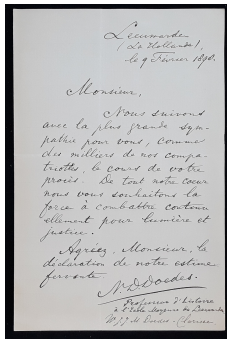 Leeuwarden
(La Hollande),
le 9 Février 1898.
Monsieur,
Nous suivons
avec la plus grande sym-
pathie pour vous, comme
des milliers de nos compa-
triottes, le cours de votre
procès. De tout notre cœur
nous vous souhaitons la
force à combattre continu
ellement pour lumière et
justice.
Agréez, Monsieur, la
déclaration de notre estime
fervente
Doedes.
Professeur d'histoire
à l'école moyenne de
Doedes-